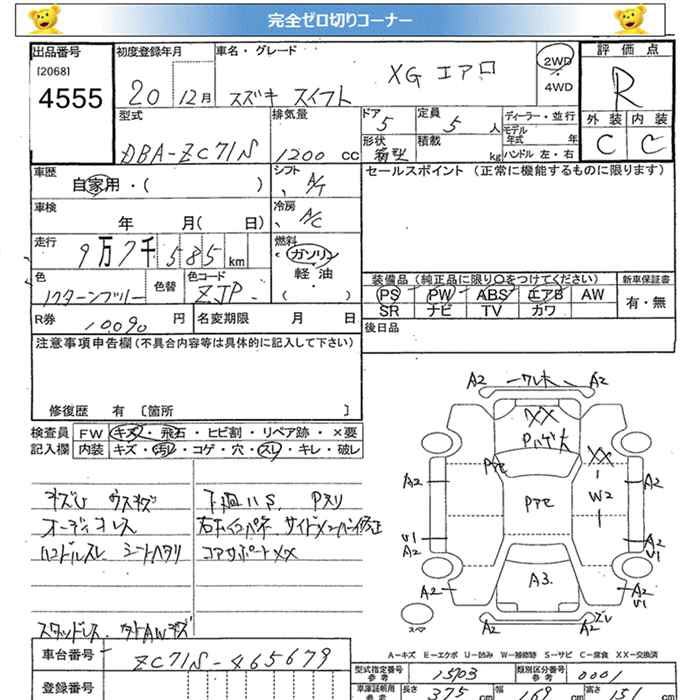 完全ゼロ切りコーナー
出品番号 初度登録年月 車名・グレード 評価点
[2068]
4555
20 12月 スズキ スイフト XG エアロ 2WD
4WD
R
型式 排気量 ドア 定員 ディーラー・並行 外装 内装
DBA-ZC71S 1200 cc 5 5 人 モデル年式 年
形状 積載 kg ハンドル 左・右 C C
箱型
車歴 シフト セールスポイント (正常に機能するものに限ります)
自家用・( ) A/T
車検 冷房
年 月( 日) A/C
走行 燃料
9万7千585 km ガソリン
軽油
( )
色 色替 色コード
ZJP
装備品 (純正品に限り〇をつけてください) 新車保証書
PS PW ABS エアB AW 有・無
SR ナビ TV カワ
R券 10090 円 名変期限 月 日 後日品
注意事項申告欄 (不具合内容等は具体的に記入して下さい)
修復歴 有 [箇所 ]
検査員 FW キズ・飛石・ヒビ割・リペア跡・×要
記入欄 内装 キズ・汚レ・コゲ・穴・スレ・キレ・破レ
キズU ウスキズ
オーディオレス
ハンドルスレ シートヘタリ
下廻りS Pスリ
コアサポートXX
スタッドレス
A2 A2
XX
Pハゲ大
XX
A2 Pアセ W2 A2
U1 U1
A2 A2
A3
A2 A2
U1
A2 A2 ズレ
スペア
A−キズ E−エクボ U−凹み W−補修跡 S−サビ C−腐食 XX−交換済
車台番号 ZC71S-465679 型式指定番号 参考 15703 類別区分番号 参考 0001
登録番号 車庫証明用 参考 長さ 375 cm 幅 169 高さ 151 cm